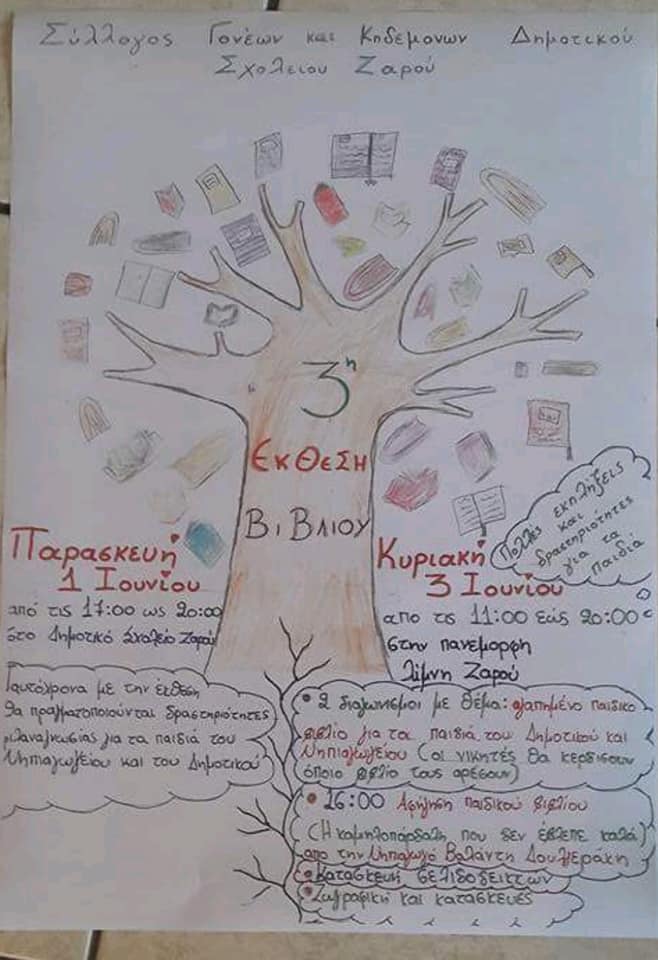 Σύλλογος Γονέων και Κηδεμόνων Δημοτικού
Σχολείου Ζαρού
3η
ΕΚΘΕΣΗ
ΒΙΒΛΙΟΥ
Παρασκευή
1 Ιουνίου
από τις 17:00 ως 20:00
στο Δημοτικό Σχολείο Ζαρού
Ταυτόχρονα με την έκθεση
θα πραγματοποιούνται δραστηριότητες
φιλαναγνωσίας για τα παιδιά του
Νηπιαγωγείου και του Δημοτικού
Πολλές εκπλήξεις
και
δραστηριότητες
για τα
παιδιά
Κυριακή
3 Ιουνίου
απο τις 11:00 εώς 20:00
στην πανεμορφη
λίμνη Ζαρού
• 2 διαγωνισμοι με θέμα: αγαπημένο παιδικο
βιβλίο για τα παιδιά του Δημοτικού και
Νηπιαγωγείου (οι νικητές θα κερδίσουν
όποιο βιβλίο τους αρέσουν)
• 16:00 Αφήγηση παιδικού βιβλίου
(Η καμηλοπάρδαλη που δεν έβλεπε καλά)
απο την Νηπιαγωγό Βαλάντη Δουλγεράκη
• Κατασκευή σελιδοδεικτών
• Ζωγραφική και κατασκευές